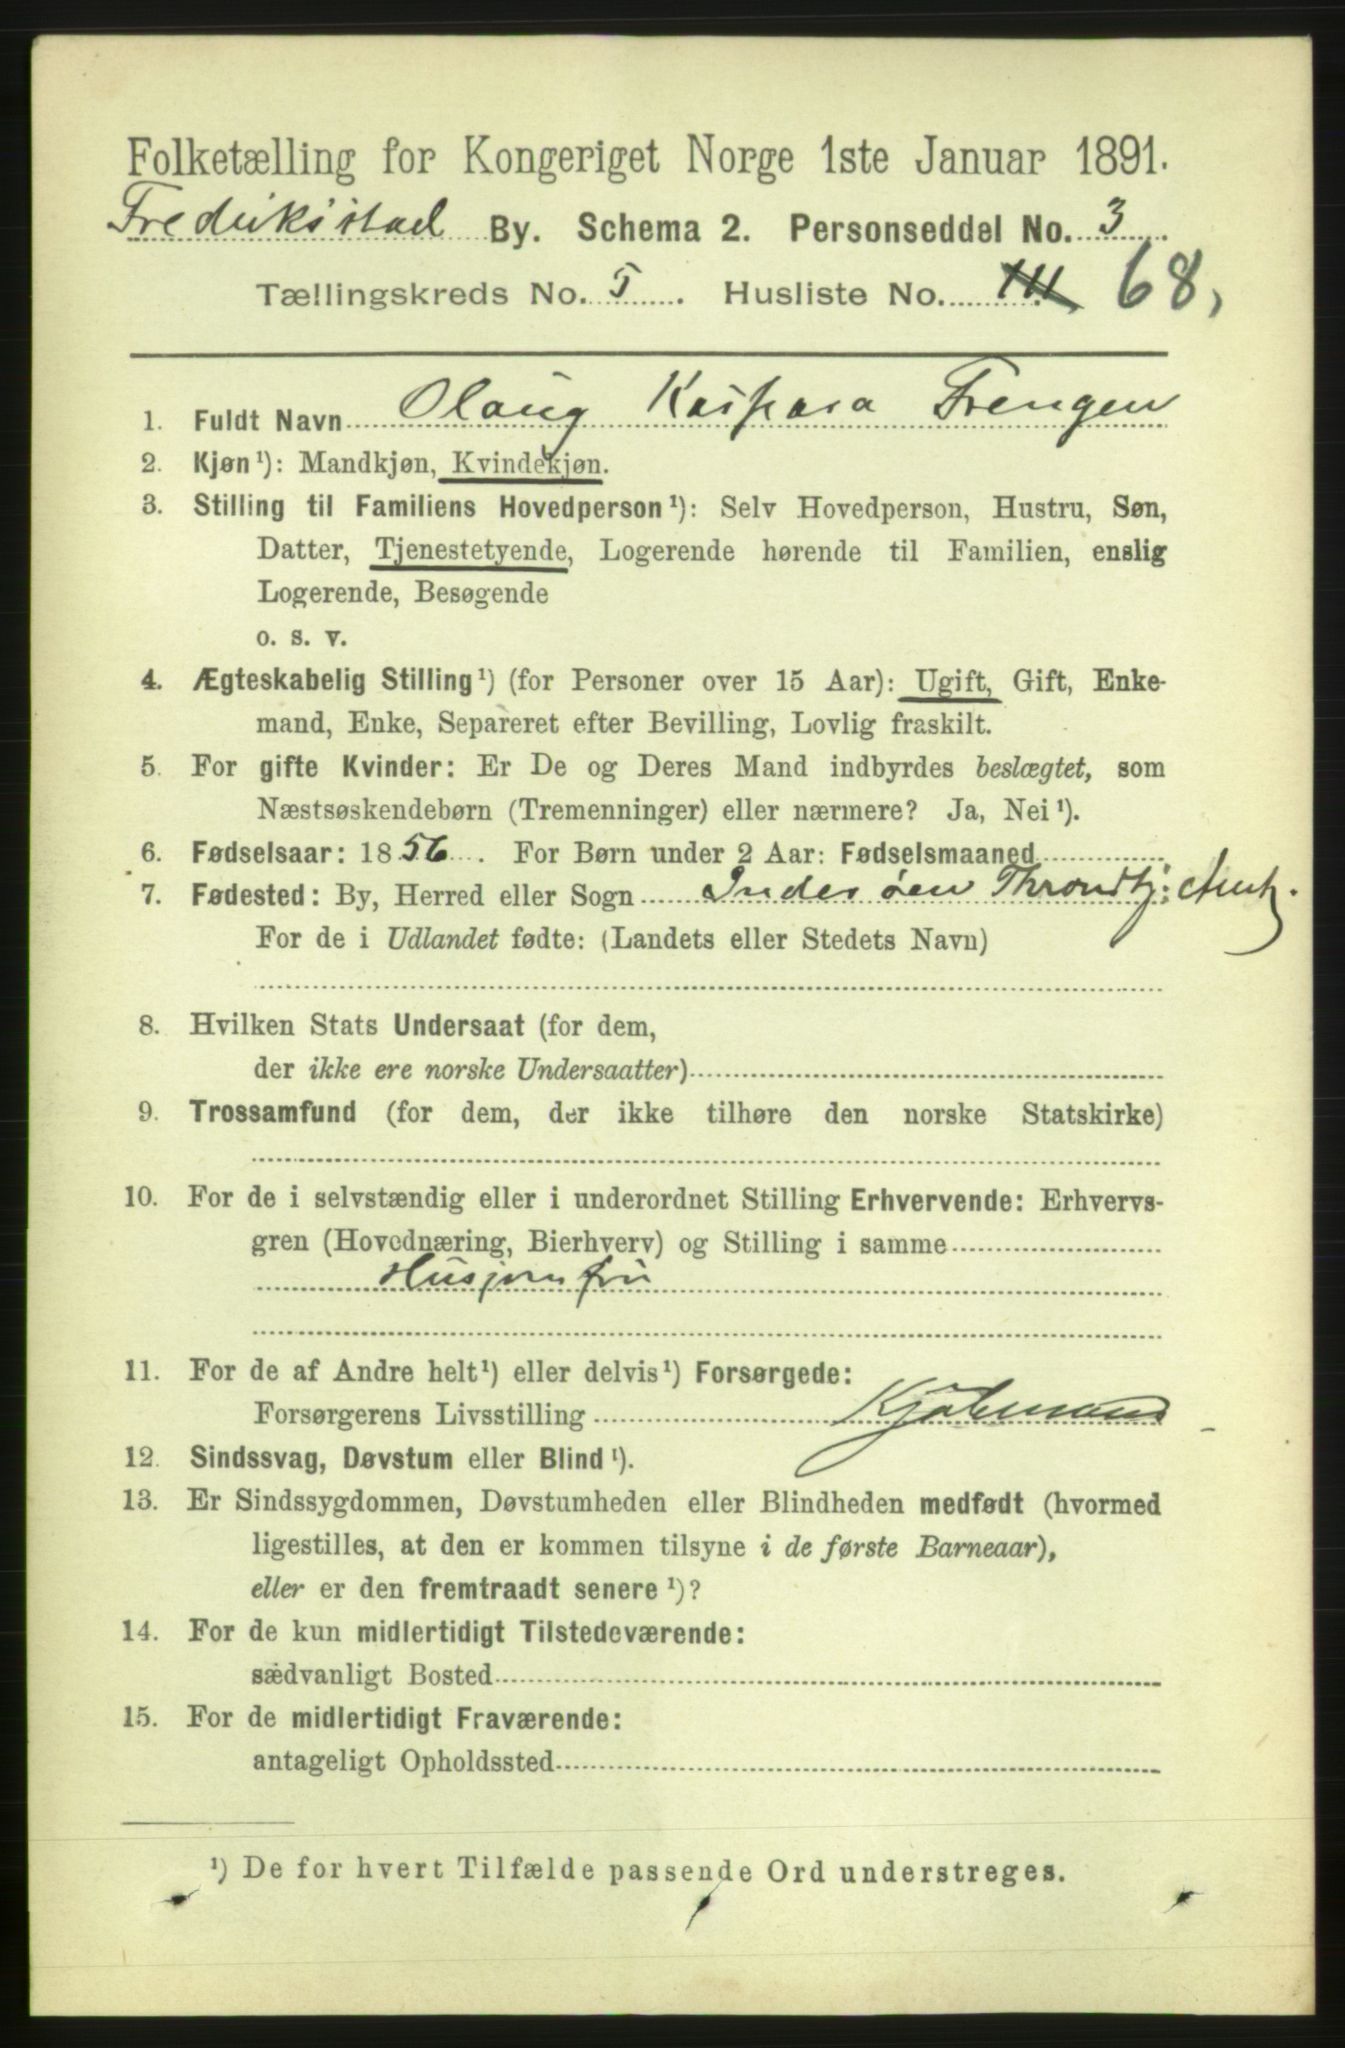 Folketælling for Kongeriget Norge 1ste Januar 1891.
Fredriksstad By. Schema 2. Personseddel No. 3
Tællingskreds No. 5. Husliste No. 111 68,
1. Fuldt Navn Olaug Kaspara Frengen
2. Kjøn¹): Mandkjøn, Kvindekjøn.
3. Stilling til Familiens Hovedperson¹): Selv Hovedperson, Hustru, Søn,
Datter, Tjenestetyende, Logerende hørende til Familien, enslig
Logerende, Besøgende
o. s. v.
4. Ægteskabelig Stilling¹) (for Personer over 15 Aar): Ugift, Gift, Enke-
mand, Enke, Separeret efter Bevilling, Lovlig fraskilt.
5. For gifte Kvinder: Er De og Deres Mand indbyrdes beslægtet, som
Næstsøskendebørn (Tremenninger) eller nærmere? Ja, Nei¹).
6. Fødselsaar: 1856. For Børn under 2 Aar: Fødselsmaaned
7. Fødested: By, Herred eller Sogn Inderøen Throndtj: Amt.
For de i Udlandet fødte: (Landets eller Stedets Navn)
8. Hvilken Stats Undersaat (for dem,
der ikke ere norske Undersaatter)
9. Trossamfund (for dem, der ikke tilhøre den norske Statskirke)
10. For de i selvstændig eller i underordnet Stilling Erhvervende: Erhvervs-
gren (Hovednæring, Bierhverv) og Stilling i samme
Husjomfru
11. For de af Andre helt¹) eller delvis¹) Forsørgede:
Forsørgerens Livsstilling Kjøbmand
12. Sindssvag, Døvstum eller Blind¹).
13. Er Sindssygdommen, Døvstumheden eller Blindheden medfødt (hvormed
ligestilles, at den er kommen tilsyne i de første Barneaar),
eller er den fremtraadt senere¹)?
14. For de kun midlertidigt Tilstedeværende:
sædvanligt Bosted
15. For de midlertidigt Fraværende:
antageligt Opholdssted
¹) De for hvert Tilfælde passende Ord understreges.